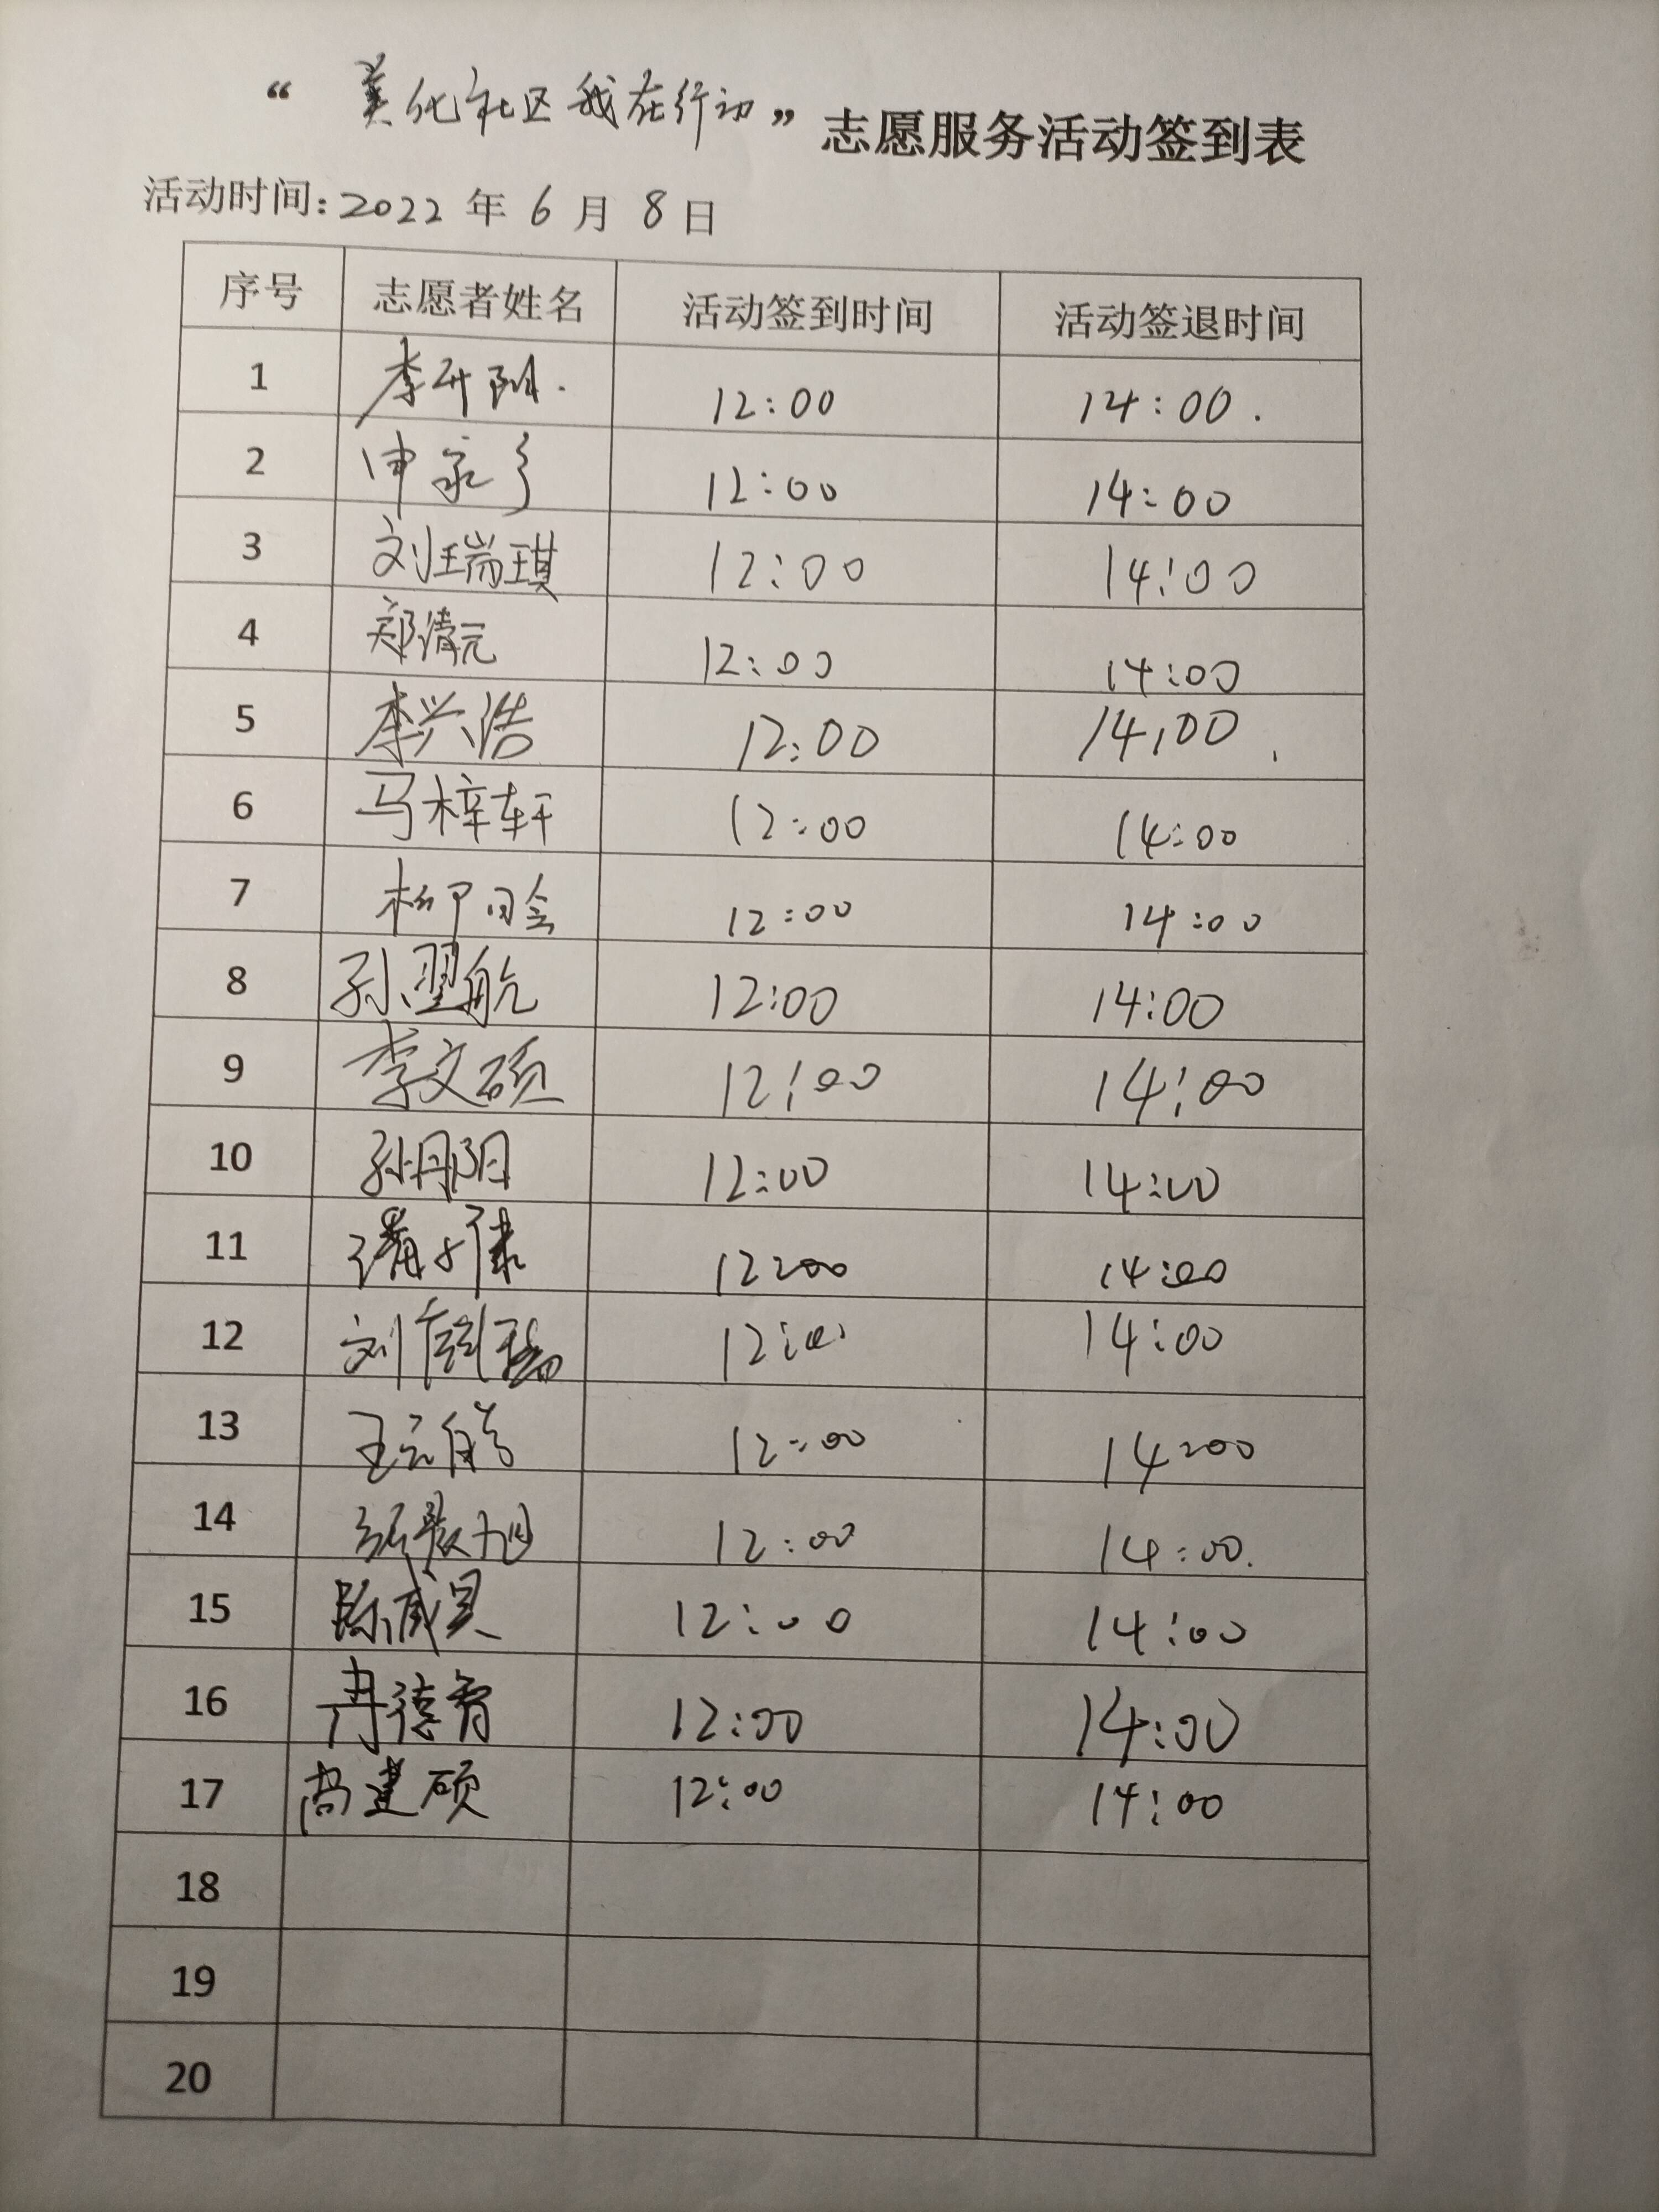 “美化社区我在行动”志愿服务活动签到表
活动时间:2022年6月8日
序号 志愿者姓名 活动签到时间 活动签退时间
1 李开阳. 12:00 14:00.
2 申家 12:00 14:00
3 刘瑞琪 12:00 14:00
4 郑清元 12:00 14:00
5 李兴浩 12:00 14:00
6 马梓轩 12:00 14:00
7 柳 12:00 14:00
8 孙翌航 12:00 14:00
9 李文硕 12:00 14:00
10 孙丹阳 12:00 14:00
11 12:00 14:00
12 刘 12:00 14:00
13 王 12:00 14:00
14 旭 12:00 14:00.
15 陈 12:00 14:00
16 冉德智 12:00 14:00
17 尚建硕 12:00 14:00
18
19
20